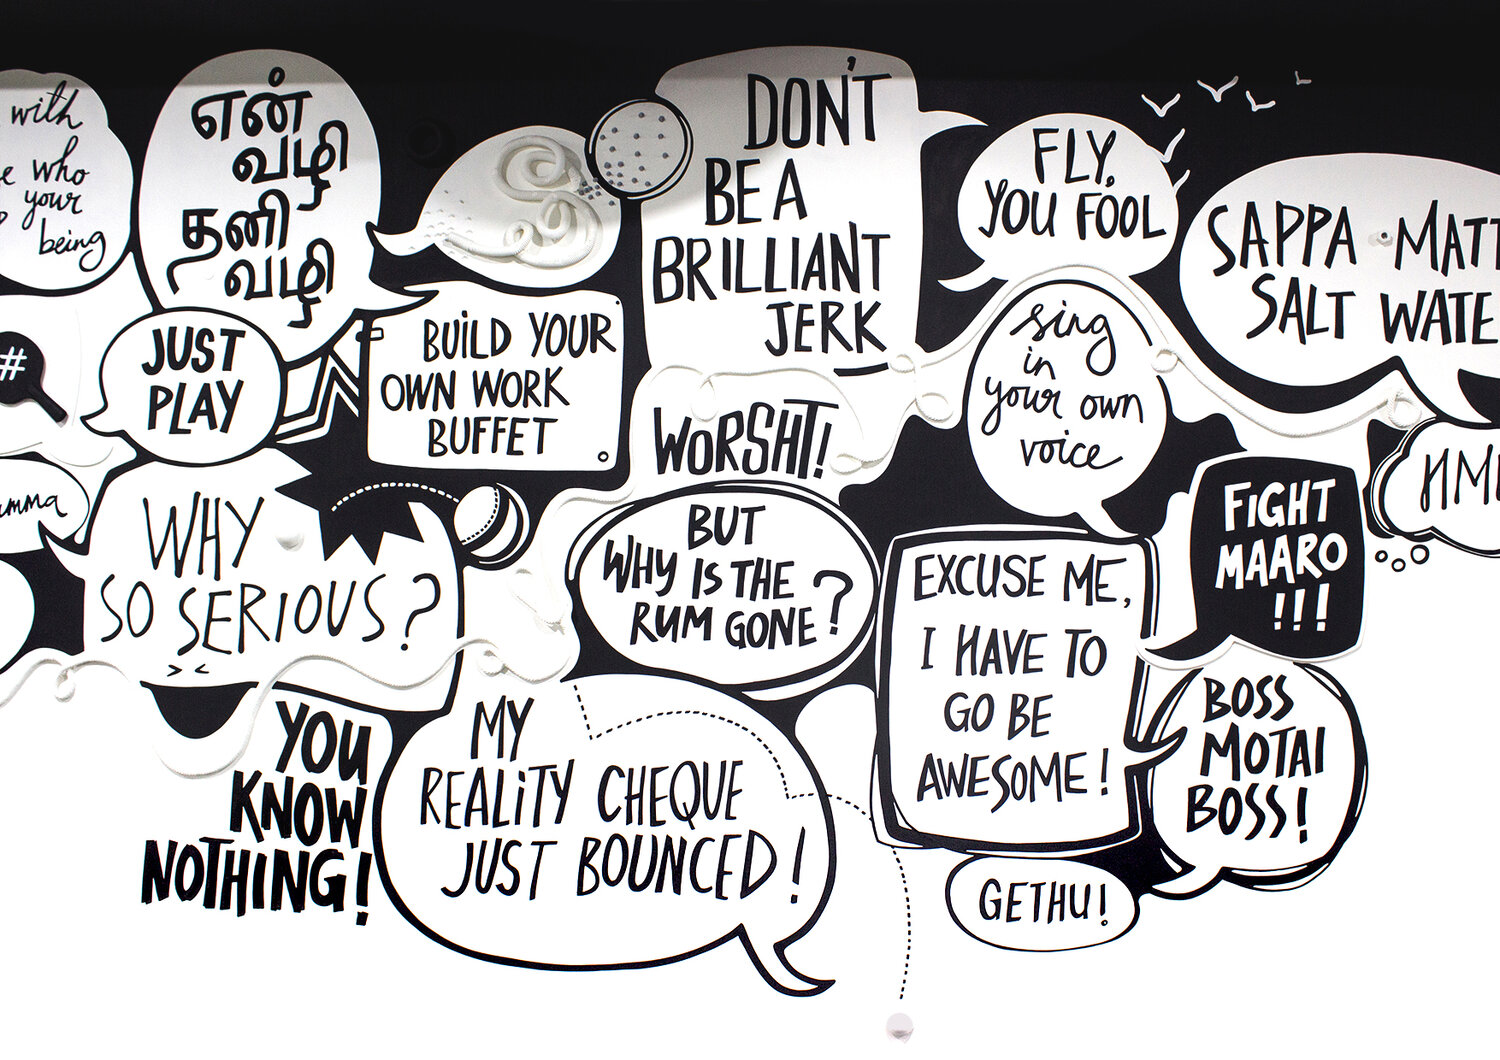 with
who
your
being
என்
வழி
தனி
வழி
DON'T
BE A
BRILLIANT
JERK
FLY,
YOU FOOL
SAPPA MATT
SALT WATE
#
JUST
PLAY
BUILD YOUR
OWN WORK
BUFFET
sing
in
your own
voice
WORSHT!
WHY
SO SERIOUS?
BUT
WHY IS THE
RUM GONE?
EXCUSE ME,
I HAVE TO
GO BE
AWESOME!
FIGHT
MAARO
!!!
HM
YOU
KNOW
NOTHING!
MY
REALITY CHEQUE
JUST BOUNCED!
BOSS
MOTAI
BOSS!
GETHU!